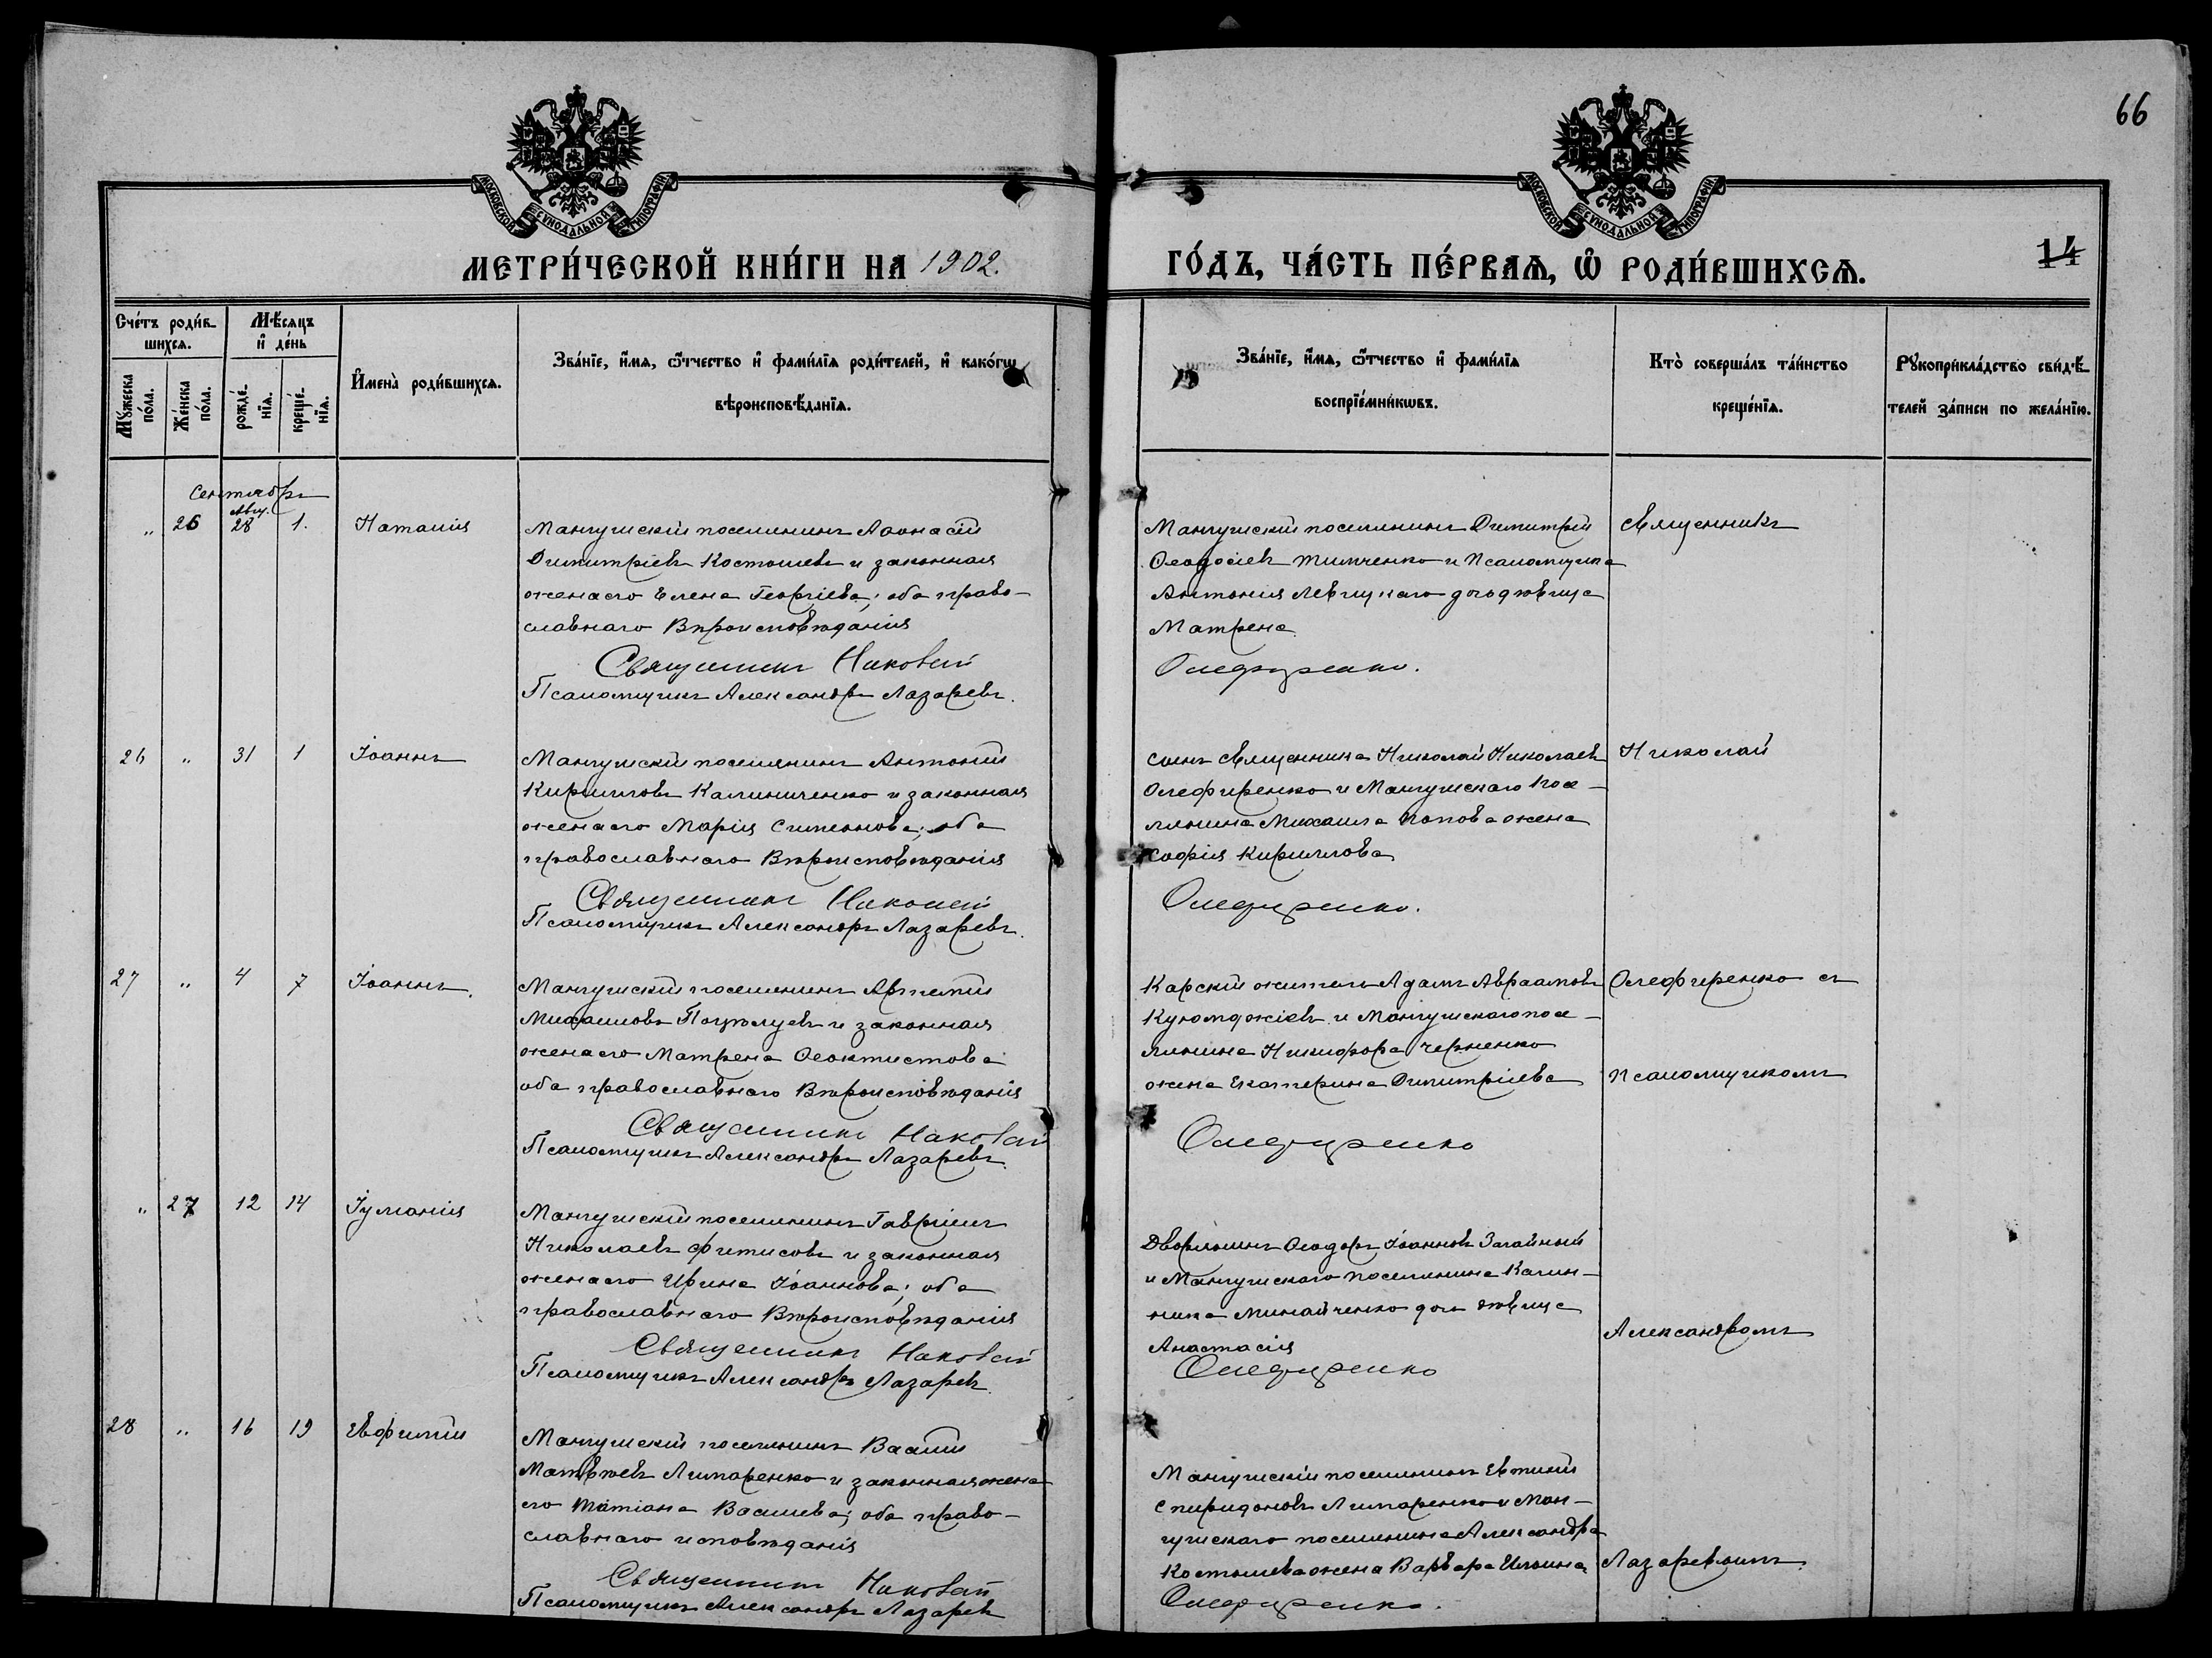 66
МОСКОВСКОЙ СѴНОДАЛЬНОЙ ТИПОГРАФІИ
МОСКОВСКОЙ СѴНОДАЛЬНОЙ ТИПОГРАФІИ
МЕТРИ́ЧЕСКОЙ КНИ́ГИ НА 1902.
ГО́ДЪ, ЧА́СТЬ ПЕ́РВАѦ, Ѡ҆ РОДИ́ВШИХСѦ.
14
Сче́тъ роди́в-
шихсѧ.
Мѣ́сѧцъ
и҆ де́нь
Мꙋ́жеска
по́ла.
Же́нска
по́ла.
рожде́-
нїѧ.
креще́-
нїѧ.
И҆мена̀ роди́вшихсѧ.
Зва́нїе, и҆́мѧ, ѻ҆́тчество и҆ фами́лїѧ роди́телей, и҆ како́гѡ
вѣроисповѣ́данїѧ.
Зва́нїе, и҆́мѧ, ѻ҆́тчество и҆ фами́лїѧ
воспрїе́мникѡвъ.
Кто̀ соверша́лъ та́инство
креще́нїѧ.
Рꙋкоприкла́дство свидѣ́-
телей за́писи по жела́нїю.
Сентябрь
Авг.
„ 26 28 1. Наталія
Мангушскій поселянинъ Аѳонасій
Димитріевъ Костылевъ и законная
жена его Елена Георгіева; оба право-
славнаго Вѣроисповѣданія
Священникъ Николай
Псаломщикъ Александръ Лазаревъ.
Мангушскій поселянинъ Димитрій
Ѳеодосіевъ Тимченко и Псаломщика
Антонія Левицкаго дочь дѣвица
Матрена
Олефиренко.
Священникъ
26 „ 31 1 Іоаннъ
Мангушскій поселянинъ Антоній
Кирилловъ Калиниченко и законная
жена его Марія Симеонова; оба
православнаго Вѣроисповѣданія
Священникъ Николай
Псаломщикъ Александръ Лазаревъ.
сынъ священника Николай Николаевъ
Олефиренко и Мангушскаго посе-
лянина Михаила Попова жена
Софія Кириллова
Олефиренко.
Николай
27 „ 4 7 Іоаннъ.
Мангушскій поселянинъ Артемій
Михаиловъ и законная
жена его Матрена Ѳеоктистова
оба православнаго Вѣроисповѣданія
Священникъ Николай
Псаломщикъ Александръ Лазаревъ.
Карскій житель Адамъ Авраамовъ
Куюмджіевъ и Мангушскаго посе-
лянина Никифора Черненко
жена Екатерина Димитріева
Олефиренко
Олефиренко съ
псаломщикомъ
„ 27 12 14 Іуліанія
Мангушскій поселянинъ Гавріилъ
Николаевъ Фитисовъ и законная
жена его Ирина Іоаннова; оба
православнаго Вѣроисповѣданія
Священникъ Николай
Псаломщикъ Александръ Лазаревъ.
Дворянинъ Ѳеодоръ Іоанновъ
и Мангушскаго поселянина Калин-
ника Минайченко дочь дѣвица
Анастасія
Олефиренко
Александромъ
28 „ 16 19 Евфимій
Мангушскій поселянинъ Василій
Матвѣевъ Лимаренко и законная жена
его Татіана Василева; оба право-
славнаго исповѣданія
Священникъ Николай
Псаломщикъ Александръ Лазаревъ
Мангушскій поселянинъ Евтихій
Спиридоновъ Лимаренко и Ман-
гушскаго поселянина Александра
Костылева жена Варвара Ильина
Олефиренко.
Лазаревымъ.